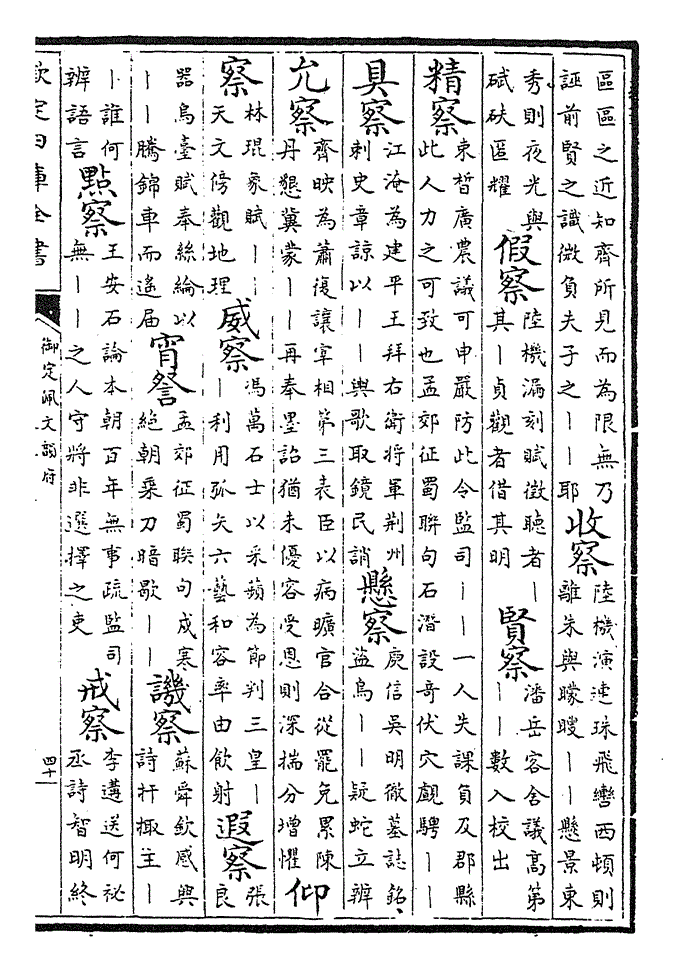 區區之近知齊所見而為限無乃
誣前賢之識微負夫子之丨丨耶
收察
陸機演連珠飛轡西頓則
離朱與矇瞍丨丨懸景東
秀則夜光與
碔砆匿耀
假察
陸機漏刻賦徵聽者丨
其丨貞觀者借其明
賢察
潘岳客舍議高第
丨丨數入校出
精察
束晳廣農議可申嚴防此令監司丨丨一人失課負及郡縣
此人力之可致也孟郊征蜀聯句石潛設奇伏穴覷騁丨丨
具察
江淹為建平王拜右衛將軍荆州
刺史章諒以丨丨輿歌取鏡民誚
懸察
庾信吳明徹墓誌銘
盜烏丨丨疑蛇立辨
允察
齊映為蕭復讓宰相第三表臣以病曠官合從罷免累陳
丹懇冀蒙丨丨再奉墨詔猶未優容受恩則深揣分增懼
仰
察
林琨象賦丨丨
天文傍觀地理
威察
馮萬石士以采蘋為節判三皇丨
丨利用弧矢六藝和容率由飲射
遐察
張
良
器烏臺賦奉絲綸以
丨丨騰錦車而遙届
宵詧
孟郊征蜀聯句戍寒
絕朝乘刀暗歇丨丨
譏察
蘇舜欽感興
詩扞掫主丨
丨誰何
辨語言
點察
王安石論本朝百年無事疏監司
無丨丨之人守將非選擇之吏
戒察
李遘送何祕
丞詩智明終
欽定四庫全書
御定佩文韻府
四十